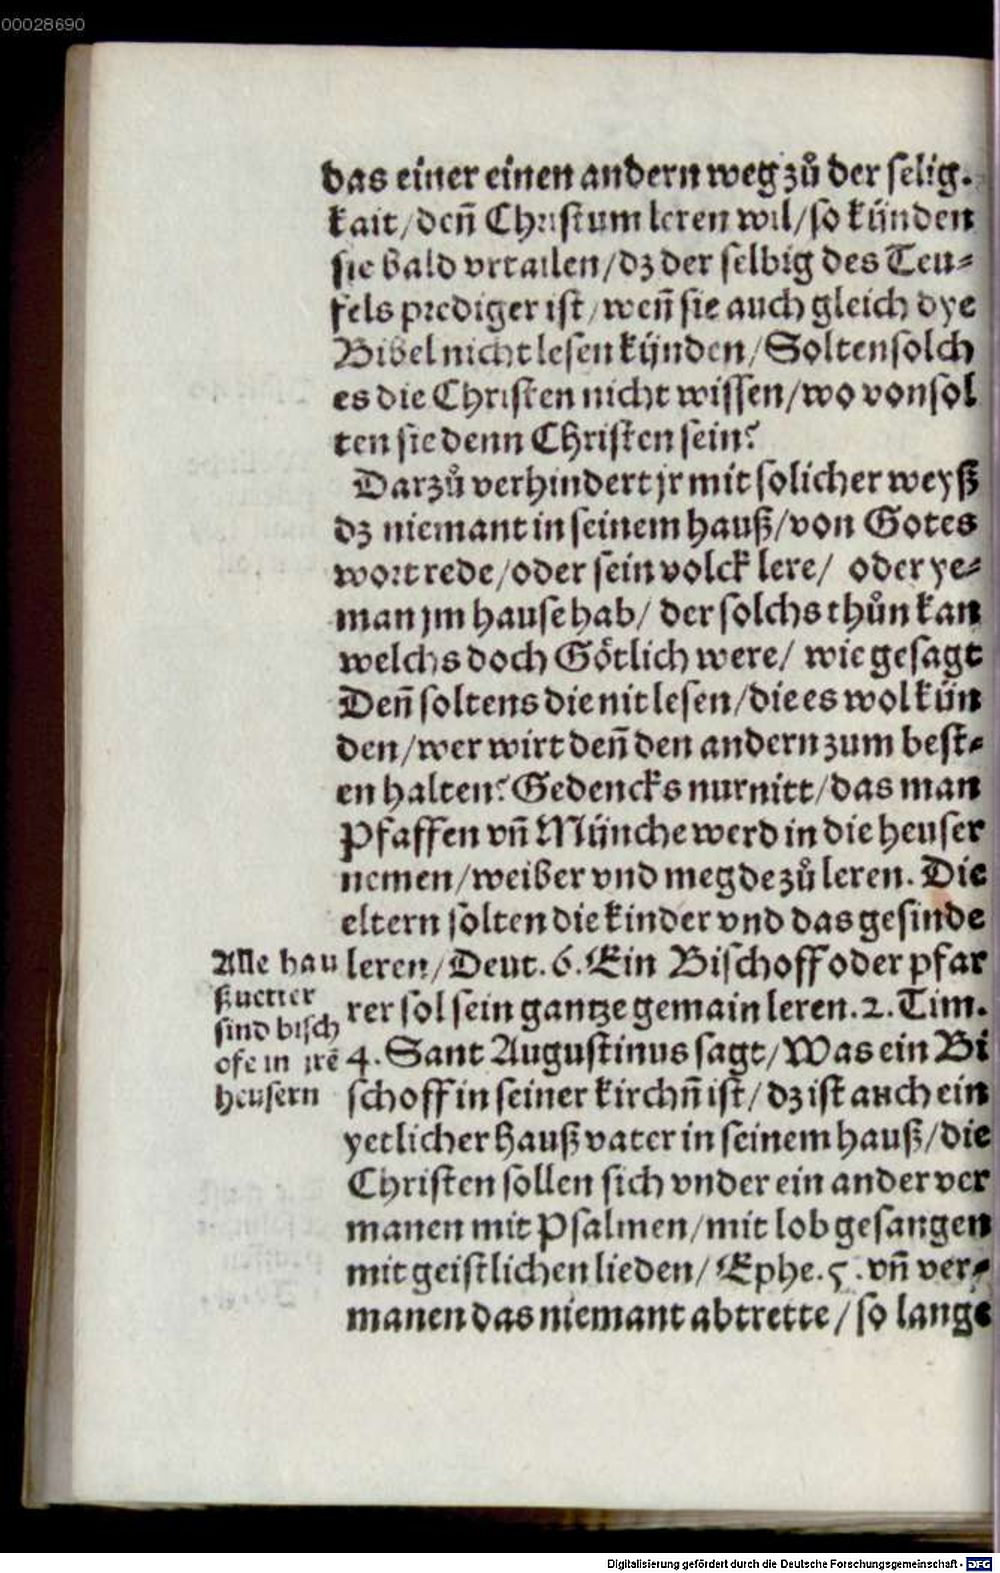 00028690
das einer einen andern weg zů der selig.
kait/deñ Christum leren wil/so künden
sie bald vrtailen/dz der selbig des Teu⸗
fels prediger ist/weñ sie auch gleich dye
Bibel nicht lesen kijnden/Solten solch
es die Christen nicht wissen/wo von sol
ten sie denn Christen sein?
Darzů verhindert jr mit solicher weyß
dz niemant in seinem hauß/von Gotes
wort rede/oder sein volck lere/ oder ye⸗
man jm hause hab/ der solchs thůn kan
welchs doch Götlich were/ wie gesagt
Deñ soltens die nit lesen/die es wol kün
den/wer wirt deñ den andern zum best⸗
en halten? Gedencks nur nitt/das man
Pfaffen vñ Münche werd in die heuser
nemen/weiber vnd megde zů leren. Die
eltern solten die kinder vnd das gesinde
leren/Deut. 6. Ein Bischoff oder pfar
rer sol sein gantze gemain leren. 2. Tim.
4. Sant Augustinus sagt/Was ein Bi
schoff in seiner kirchñ ist/dz ist auch ein
yetlicher Hauß vater in seinem hauß/die
Christen sollen sich vnder ein ander ver
manen mit Psalmen/mit lob gesangen
mit geistlichen lieden/ Ephe. 5. vñ ver⸗
manen das niemant abtrette/so lange
Alle hau
ßuetter
sind bisch
ofe in jrē
heusern
Digitalisierung gefördert durch die Deutsche Forschungsgemeinschaft - DFG